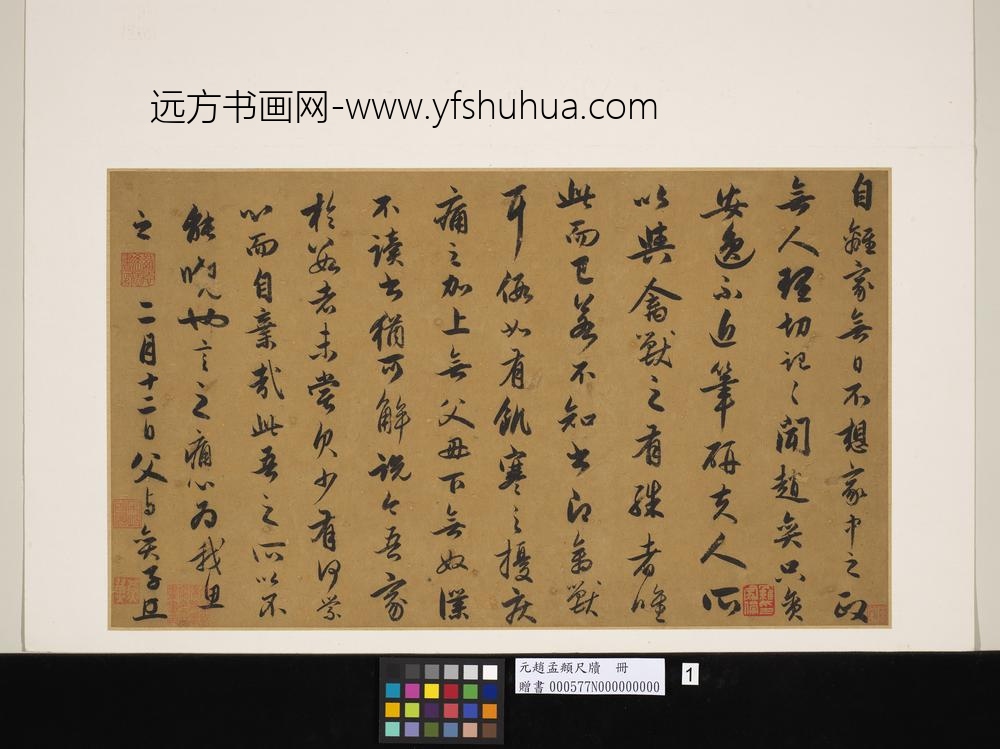 远方书画网-www.yfshuhua.com
自離家無日不想家中之政
無人理切記〻聞趙奕只貪
安逸不近筆研夫人所
以異禽獸之有殊者唯
此而已若不知書即禽獸
耳假如有飢寒之擾疾
痛之加上無父母下無奴僕
不讀書猶可解說今吾家
於若者未嘗欠少有何緊
心而自棄哉此吾之所以不
能曉也言之痛心為我思
之 二月十二日父与奕子且
元趙孟頫尺牘 冊
贈書 000577N000000000
1